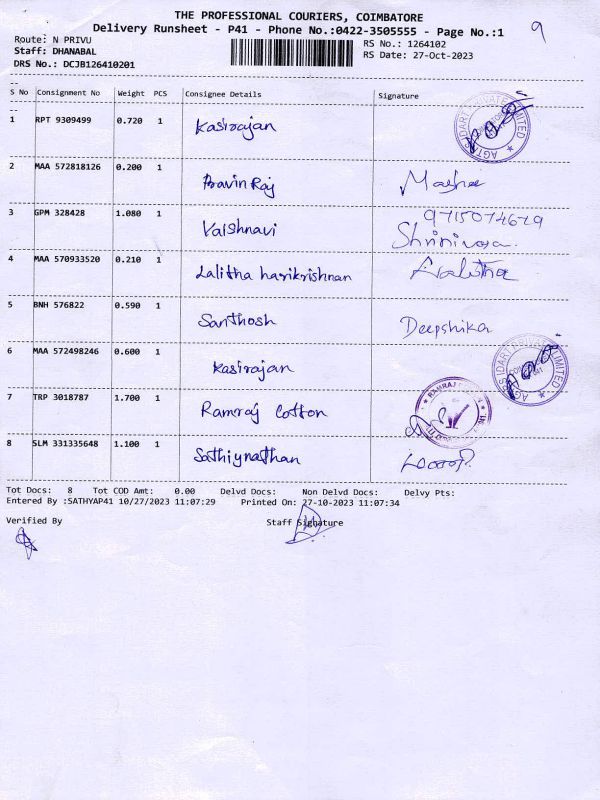 THE PROFESSIONAL COURIERS, COIMBATORE
Delivery Runsheet - P41 - Phone No.:0422-3505555 - Page No.:1
9
Route: N PRIVU
RS No.: 1264102
Staff: DHANABAL
RS Date: 27-Oct-2023
DRS No.: DCJB126410201
S No Consignment No Weight PCS Consignee Details Signature
1 RPT 9309499 0.720 1 Kasirajan
2 MAA 572818126 0.200 1 Pravin Raj
3 GPM 328428 1.080 1 Vaishnavi 9715074629
Shrinivasa
4 MAA 570933520 0.210 1 Lalitha harikrishnan Lalitha
5 BNH 576822 0.590 1 Santhosh Deepshika
6 MAA 572498246 0.600 1 Kasirajan
7 TRP 3018787 1.700 1 Ramraj Cotton
8 SLM 331335648 1.100 1 Sathiynathan
Tot Docs: 8 Tot COD Amt: 0.00 Delvd Docs: Non Delvd Docs: Delvy Pts:
Entered By :SATHYAP41 10/27/2023 11:07:29 Printed On: 27-10-2023 11:07:34
Verified By Staff Signature